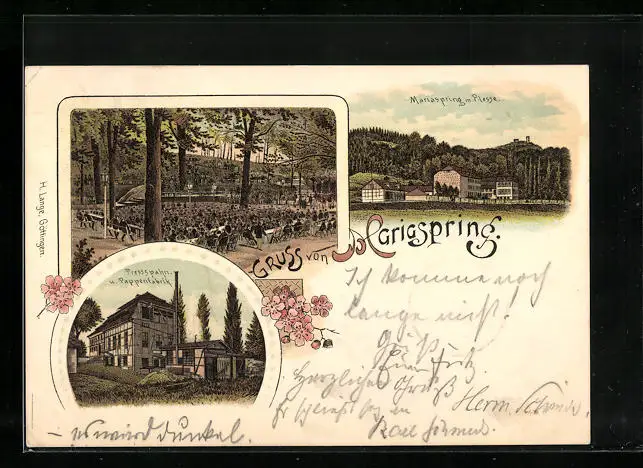 H. Lange, Göttingen.
Mariaspring m. Plesse.
Gruss von Mariaspring.
Pressspahn
u. Pappenfabrik
Ich komme noch
lange nicht.
Gruß
Fritz
Herzlichen Gruß
Herm.
Karl
– es wird dunkel.